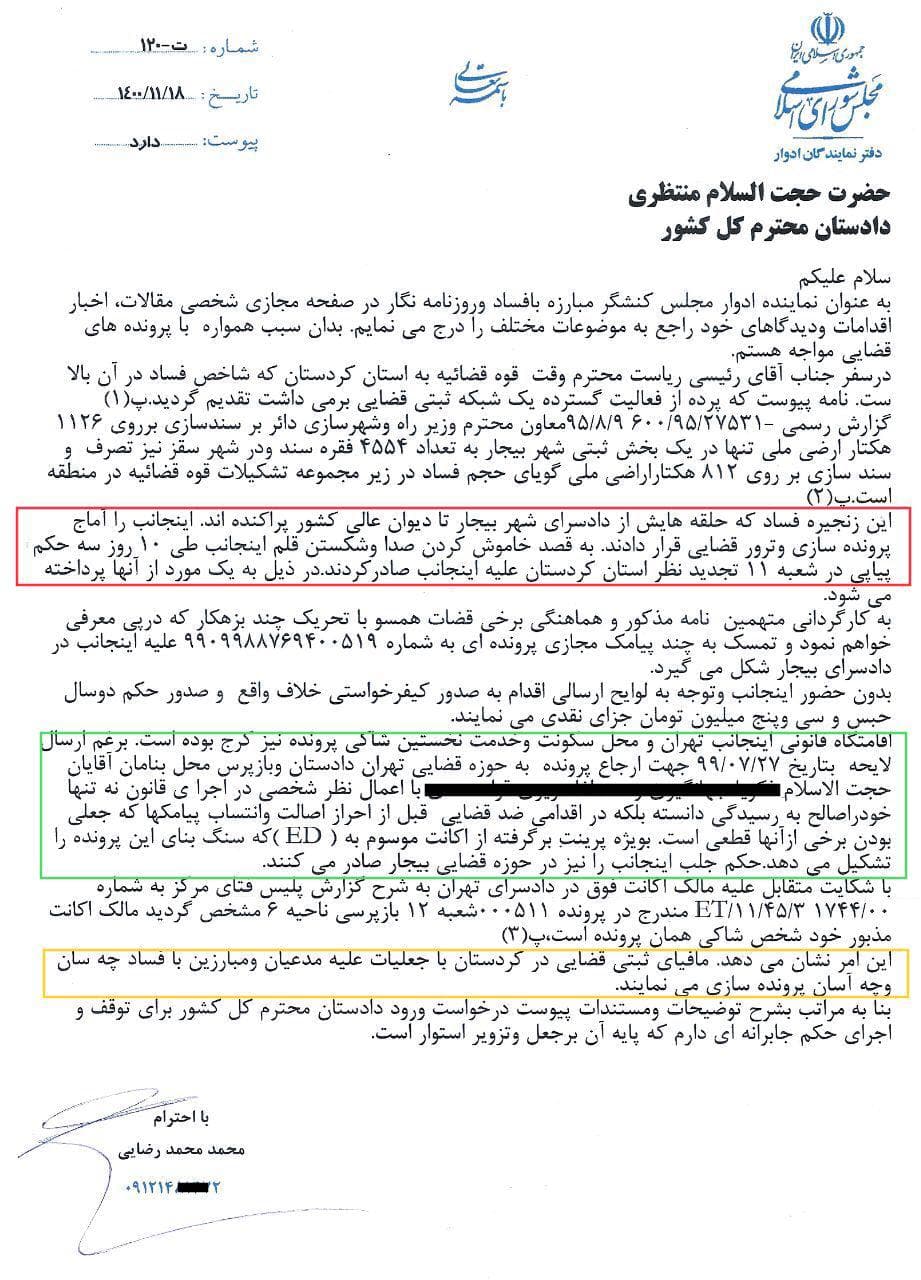 جمهوری اسلامی ایران
مجلس شورای اسلامی
دفتر نمایندگان ادوار
باسمه تعالی
شماره: ت-۱۲۰
تاریخ: ۱۴۰۰/۱۱/۱۸
پیوست: دارد
حضرت حجت السلام منتظری
دادستان محترم کل کشور
سلام علیکم
به عنوان نماینده ادوار مجلس کنشگر مبارزه بافساد وروزنامه نگار در صفحه مجازی شخصی مقالات، اخبار
اقدامات ودیدگاهای خود راجع به موضوعات مختلف را درج می نمایم. بدان سبب همواره با پرونده های
قضایی مواجه هستم.
درسفر جناب آقای رئیسی ریاست محترم وقت قوه قضائیه به استان کردستان که شاخص فساد در آن بالا
ست. نامه پیوست که پرده از فعالیت گسترده یک شبکه ثبتی قضایی برمی داشت تقدیم گردید.پ(۱)
گزارش رسمی -۶۰۰/۹۵/۲۷۵۳۱ ۹۵/۸/۹معاون محترم وزیر راه وشهرسازی دائر بر سندسازی برروی ۱۱۲۶
هکتار ارضی ملی تنها در یک بخش ثبتی شهر بیجار به تعداد ۴۵۵۴ فقره سند ودر شهر سقز نیز تصرف و
سند سازی بر روی ۸۱۲ هکتاراراضی ملی گویای حجم فساد در زیر مجموعه تشکیلات قوه قضائیه در منطقه
است.پ(۲)
این زنجیره فساد که حلقه هایش از دادسرای شهر بیجار تا دیوان عالی کشور پراکنده اند. اینجانب را آماج
پرونده سازی وترور قضایی قرار دادند. به قصد خاموش کردن صدا وشکستن قلم اینجانب طی ۱۰ روز سه حکم
پیاپی در شعبه ۱۱ تجدید نظر استان کردستان علیه اینجانب صادرکردند.در ذیل به یک مورد از آنها پرداخته
می شود.
به کارگردانی متهمین نامه مذکور و هماهنگی برخی قضات همسو با تحریک چند بزهکار که درپی معرفی
خواهم نمود و تمسک به چند پیامک مجازی پرونده ای به شماره ۹۹۰۹۹۸۸۷۶۹۴۰۰۵۱۹ علیه اینجانب در
دادسرای بیجار شکل می گیرد.
بدون حضور اینجانب وتوجه به لوایح ارسالی اقدام به صدور کیفرخواستی خلاف واقع و صدور حکم دوسال
حبس و سی وپنج میلیون تومان جزای نقدی می نمایند.
اقامتگاه قانونی اینجانب تهران و محل سکونت وخدمت نخستین شاکی پرونده نیز کرج بوده است. برغم ارسال
لایحه بتاریخ ۹۹/۰۷/۲۷ جهت ارجاع پرونده به حوزه قضایی تهران دادستان وبازپرس محل بنامان آقایان
حجت الاسلام با اعمال نظر شخصی در اجرا ی قانون نه تنها
خودراصالح به رسیدگی دانسته بلکه در اقدامی ضد قضایی قبل از احراز اصالت وانتساب پیامکها که جعلی
بودن برخی ازآنها قطعی است. بویژه پرینت برگرفته از اکانت موسوم به ( ED )که سنگ بنای این پرونده را
تشکیل می دهد.حکم جلب اینجانب را نیز در حوزه قضایی بیجار صادر می کنند.
با شکایت متقابل علیه مالک اکانت فوق در دادسرای تهران به شرح گزارش پلیس فتای مرکز به شماره
۱۷۴۴/۰۰ ET/۱۱/۴۵/۳ مندرج در پرونده ۰۰۰۵۱۱شعبه ۱۲ بازپرسی ناحیه ۶ مشخص گردید مالک اکانت
مذبور خود شخص شاکی همان پرونده است،پ(۳)
این امر نشان می دهد. مافیای ثبتی قضایی در کردستان با جعلیات علیه مدعیان ومبارزین با فساد چه سان
وچه آسان پرونده سازی می نمایند.
بنا به مراتب بشرح توضیحات ومستندات پیوست درخواست ورود دادستان محترم کل کشور برای توقف و
اجرای حکم جابرانه ای دارم که پایه آن برجعل وتزویر استوار است.
با احترام
محمد محمد رضایی
۰۹۱۲۱۴ ۲۲